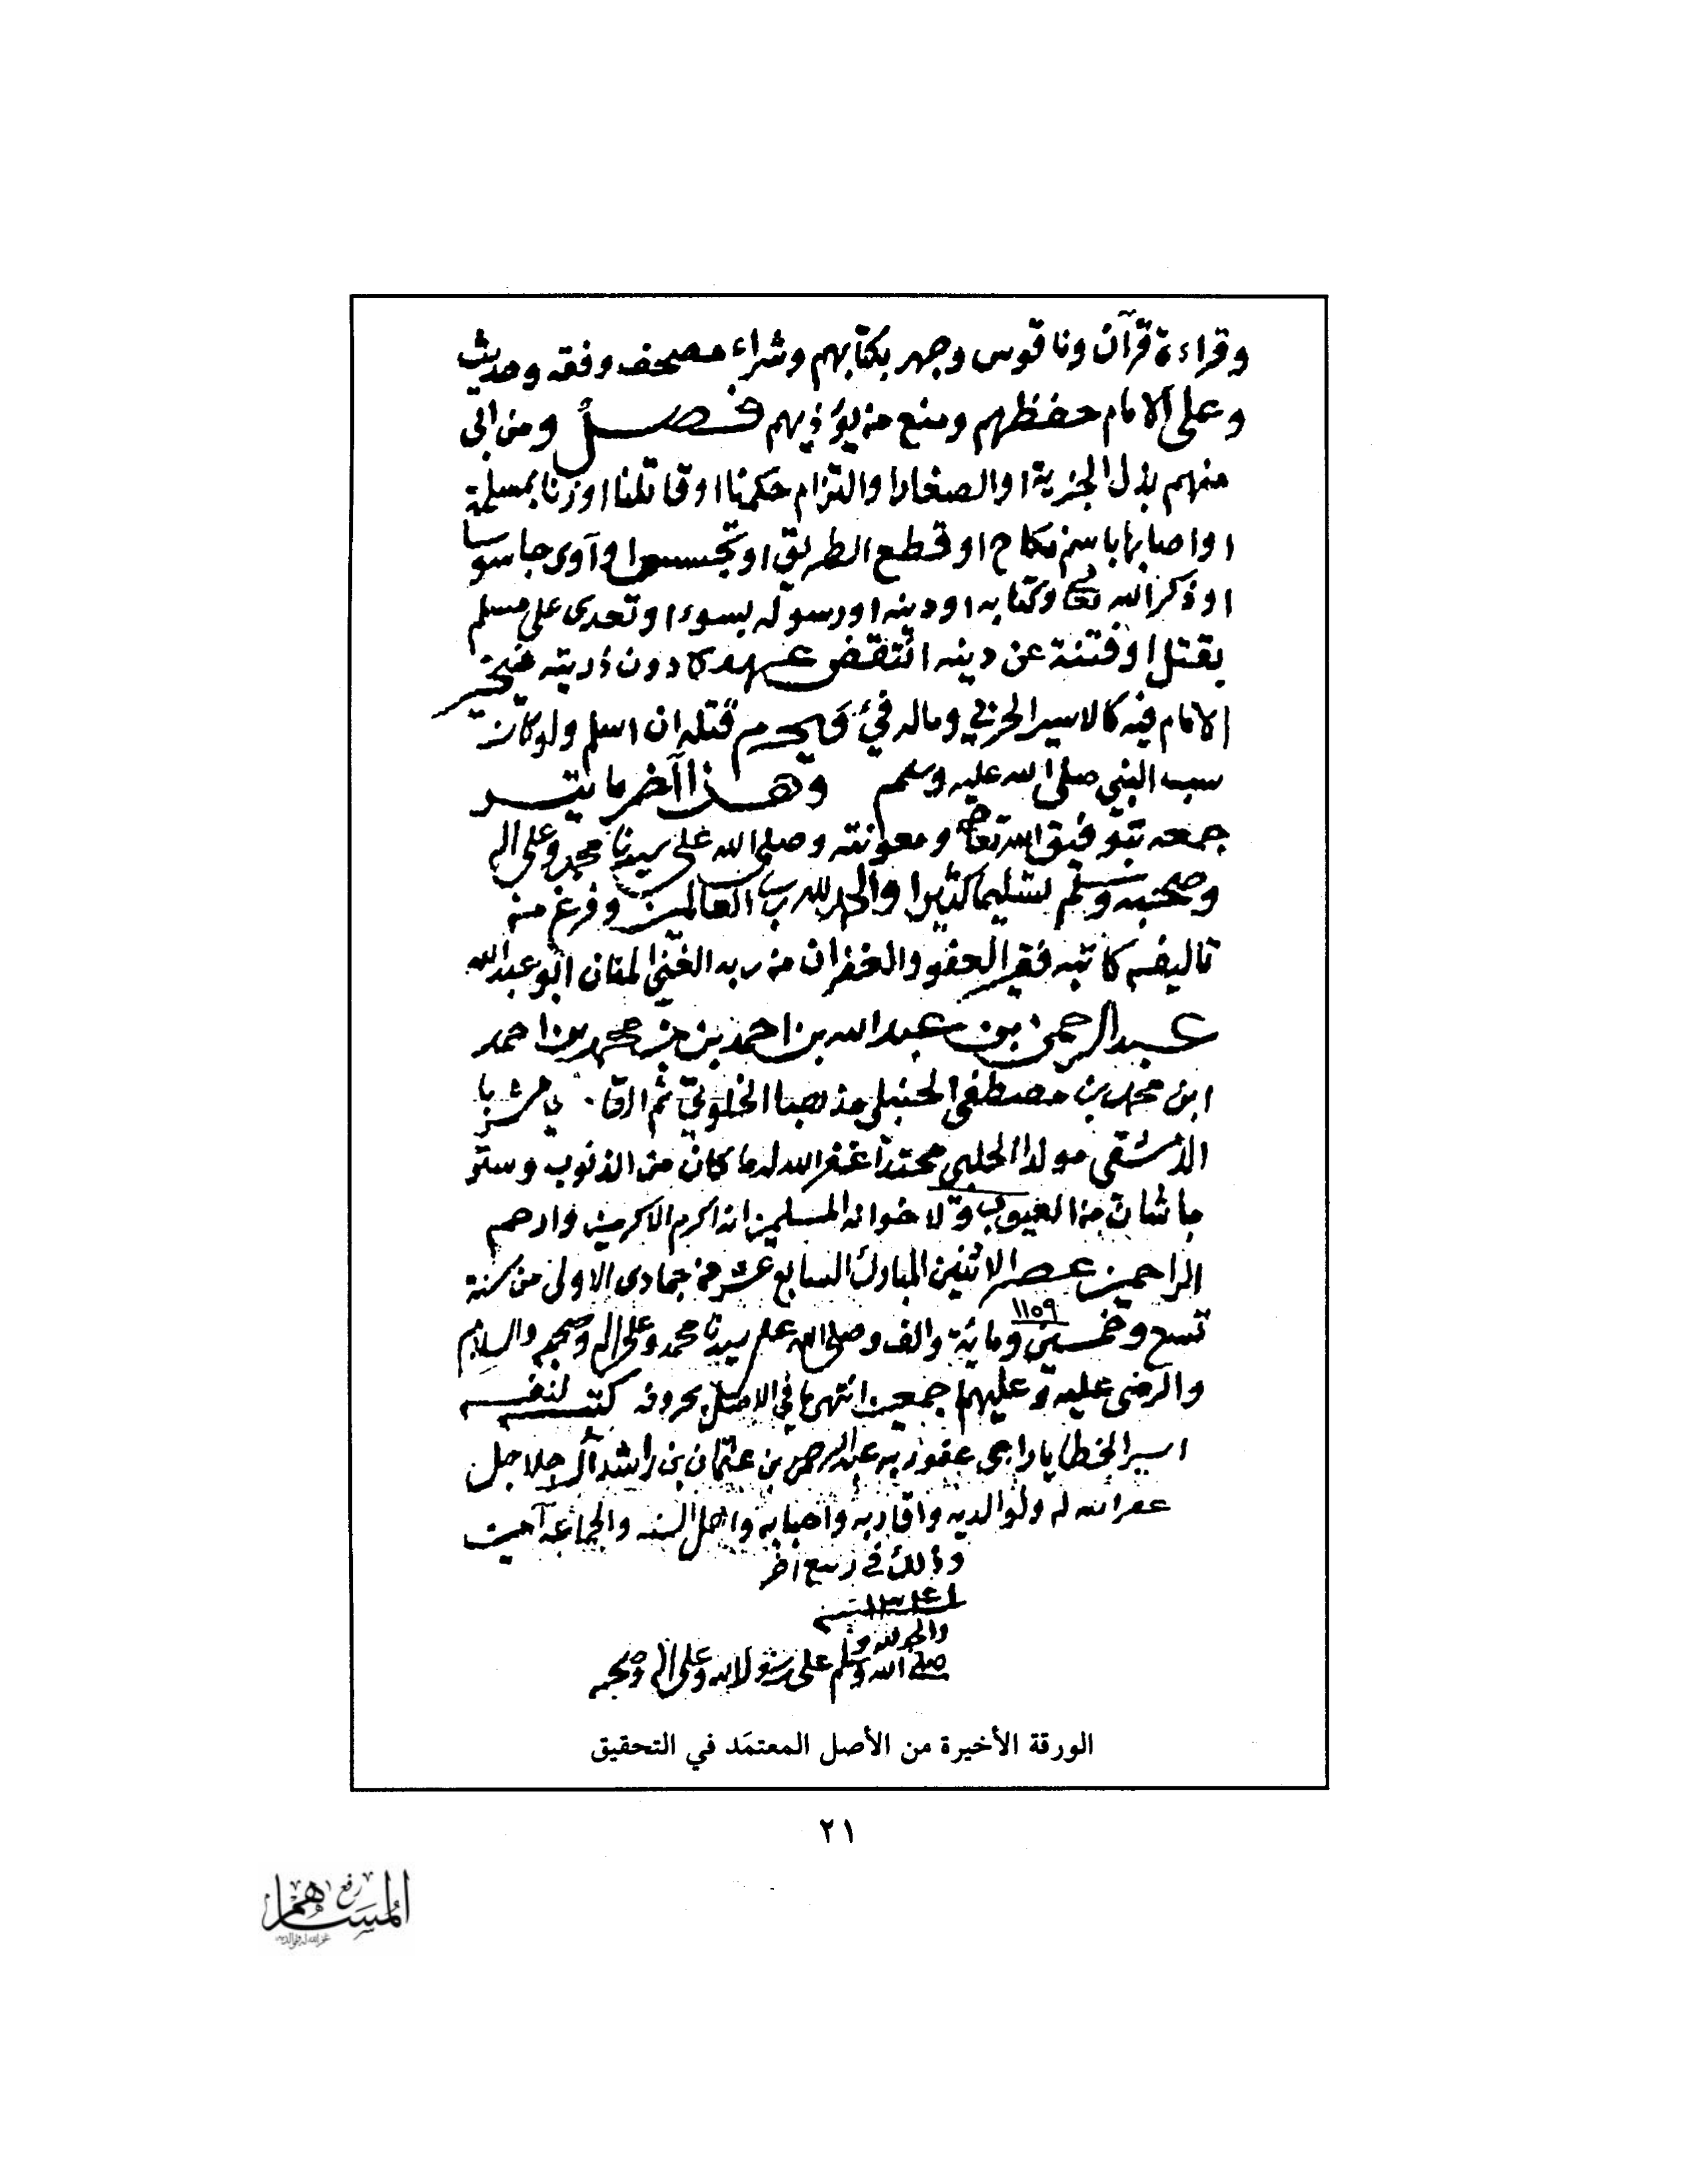 وقراءة قرآن وناقوس وجهر بكتابهم وشراء مصحف وفقه وحديث
وعلى الامام حفظهم ومنع من يؤذيهم فصل ومن ابى
منهم بذل الجزية او الصغار او التزام حكمنا او قاتلنا او زنا بمسلمة
او اصابها باسم نكاح او قطع الطريق او تجسس او آوى جاسوسا
او ذكر الله تعالى وكتابه او دينه او رسوله بسوء او تعدى على مسلم
بقتل او فتنة عن دينه انتقض عهده دون ذريته فيخير
الامام فيه كالاسير الحربي وماله فيئ ويحرم قتله ان اسلم ولو كان
سب النبي صلى الله عليه وسلم وهذا آخر ما تيسر
جمعه بتوفيق الله تعالى ومعونته وصلى الله على سيدنا محمد وعلى اله
وصحبه وسلم تسليما كثيرا والحمد لله رب العالمين وفرغ منه
تاليفه كاتبه فقير العفو والغفران من ربه الغني المنان ابو عبد الله
عبد الرحمن بن عبد الله بن احمد بن محمد بن احمد
ابن محمد بن مصطفى الحنبلي مذهبا الخلوتي ثم القا ي مشربا
الدمشقي مولدا الحلبي محتدا غفر الله له ما كان من الذنوب وستر
ما شان من العيوب ولاخوانه المسلمين انه اكرم الاكرمين وارحم
الراحمين عصر الاثنين المبارك السابع عشر من جمادى الاولى من سنة
١١٥٩
تسع وخمسين وماية والف وصلى الله على سيدنا محمد وعلى اله وصحبه والسلام
والرضى عليه وعليهم اجمعين انتهى ما في الاصل بحروفه كتبه لنفسه
اسير الخطايا راجي عفو ربه عبد الرحمن بن عثمان بن راشد آل جلاجل
غفر الله له ولوالديه واقاربه واحبابه واهل السنه والجماعه آمين
وذلك في ربيع آخر
والحمد لله و
صلى الله وسلم على رسول الله وعلى اله وصحبه
الورقة الأخيرة من الأصل المعتمَد في التحقيق
٢١
رفع
المساهم
غفر الله له ولوالديه